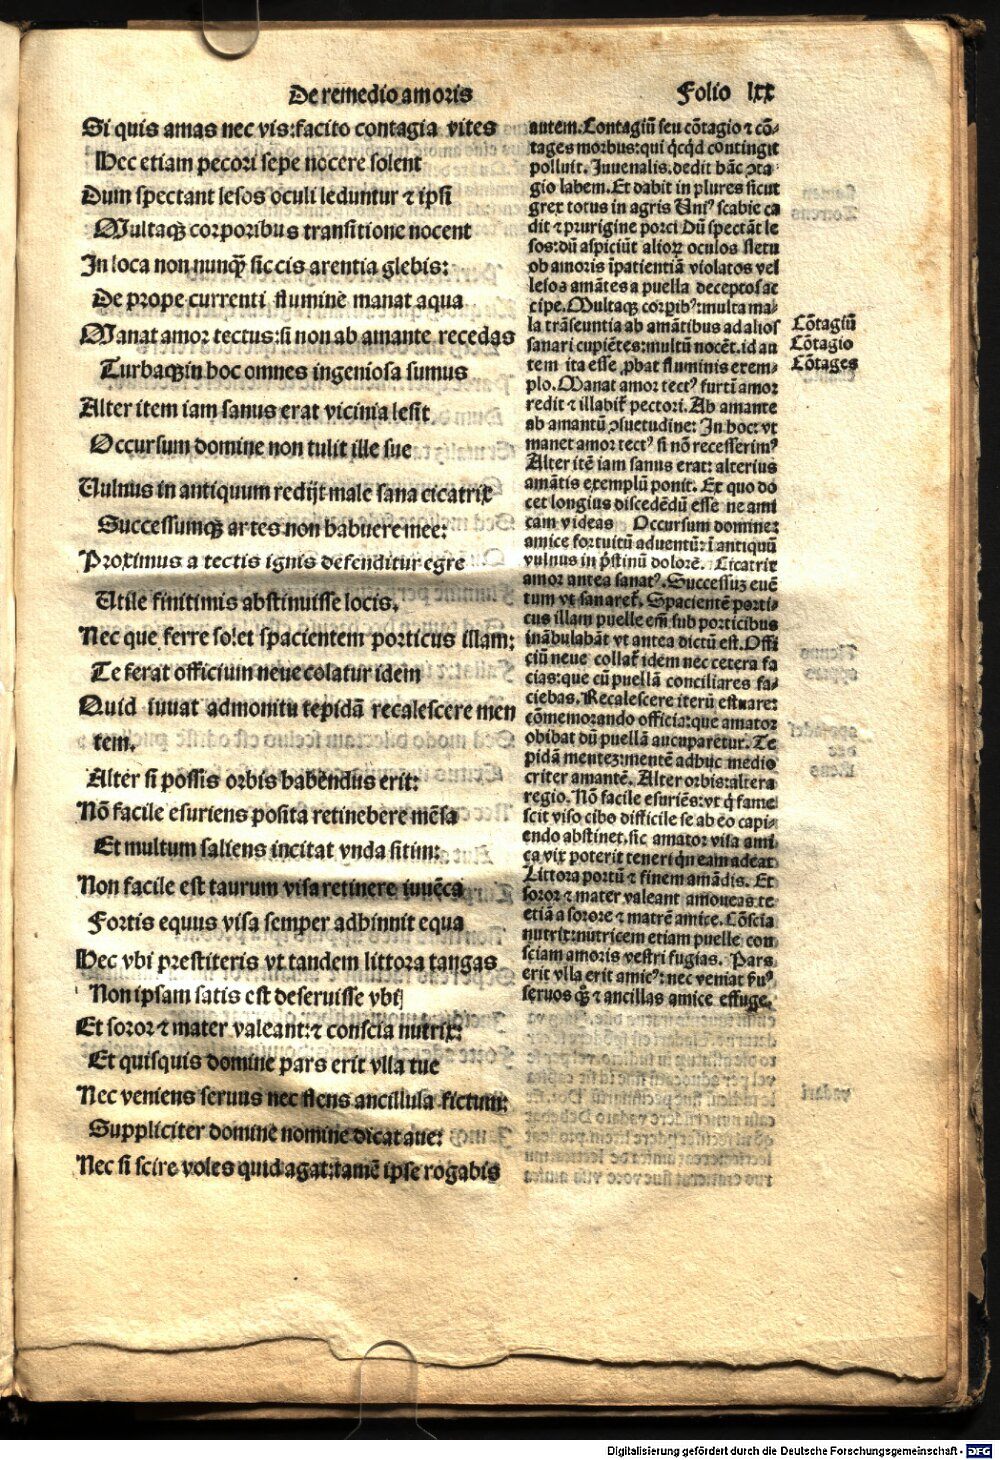 De remedio amoris
Folio lxx
Si quis amas nec vis:facito contagia vites
Hec etiam pecori sepe nocere solent
Dum spectant lesos oculi leduntur ⁊ ipsi
Multaqꝫ corporibus transitione nocent
In loca non nunqͣ siccis arentia glebis:
De prope currenti flumine manat aqua
Manat amor tectus:si non ab amante recedas
Turbaqꝫ in hoc omnes ingeniosa sumus
Alter item iam sanus erat vicinia lesit
Occursum domine non tulit ille sue
Vulnus in antiquum redijt male sana cicatrix
Successumqꝫ artes non habuere mee:
Proximus a tectis ignis defenditur egre
Utile finitimis abstinuisse locis.
Nec que ferre solet spacientem porticus illam:
Te ferat officium neue colatur idem
Quid iuuat admonitu tepidā recalescere men
tem.
Alter si possis orbis habēndus erit:
Nō facile esuriens posita retinebere mēsa
Et multum saliens incitat vnda sitim:
Non facile est taurum visa retinere iuuēca
Fortis equus visa semper adhinnit equa
Hec vbi prestiteris vt tandem littora tangas
Non ipsam satis est deseruisse vbi
Et soror ⁊ mater valeant:⁊ conscia nutrix:
Et quisquis domine pars erit vlla tue
Nec veniens seruus nec flens ancillula fictum:
Suppliciter domine nomine dicat aue:
Nec si scire voles quid agat:tamē ipse rogabis
autem.Contagiū seu cōtagio ⁊ cō-
tages morbus:qui qͥcqͥd contingit
polluit. Juuenalis.dedit hāc ↄta
gio labem.Et dabit in plures sicut
grex totus in agris Uniꝰ scabie ca
dit ⁊ prurigine porci Dū spectāt le
sos:dū aspiciūt alioꝝ oculos fletu
ob amoris īpatientiā violatos vel
lesos amātes a puella deceptos ac
cipe.Multaqꝫ corꝑibꝰ:multa ma-
la trāseuntia ab amātibus ad alios
sanari cupiētes:multū nocēt.id au
tem ita esse ꝓbat fluminis exem-
plo.Manat amor tectꝰ furtī amor
redit ⁊ illabit᷑ pectori.Ab amante
ab amantū ↄsuetudine: In hoc: vt
manet amor tectꝰ si nō recesserimꝰ
Alter itē iam sanus erat: alterius
amātis exemplū ponit. Ex quo do
cet longius discedēdū esse ne ami
cam videas Occursum domine:
amice fortuitū aduentū:ī antiquū
vulnus in pͥstinū dolorē. Cicatrix
amor antea sanatꝰ.Successuꝫ euē
tum vt sanaret᷑. Spacientē porti-
cus illam puelle em̄ sub porticibus
inābulabāt vt antea dictū est.Offi
ciū neue collat᷑ idem nec cetera fa
cias:que cū puellā conciliares fa-
ciebas.Recalescere iterū estuare:
cōmemorando officia:que amator
obibat dū puellā aucuparetur.Te
pidā mentez:mentē adhuc medio
criter amantē. Alter orbis:altera
regio.Nō facile esuriēs:vt qͥ fame
scit viso cibo difficile se ab eo capi-
endo abstinet.sic amator visa ami
ca vix poterit teneri qͥn eam adeat
Littora portū ⁊ finem amādis. Et
soror ⁊ mater valeant amoueas te
etiā a sorore ⁊ matrē amice. Cōscia
nutrix:nutricem etiam puelle con
sciam amoris vestri fugias. Pars
erit vlla erit amicꝰ: nec veniat ẜuꝰ
seruos qꝫ ⁊ ancillas amice effuge.
Cōtagiū
Cōtagio
Cōtages
Digitalisierung gefördert durch die Deutsche Forschungsgemeinschaft - DFG